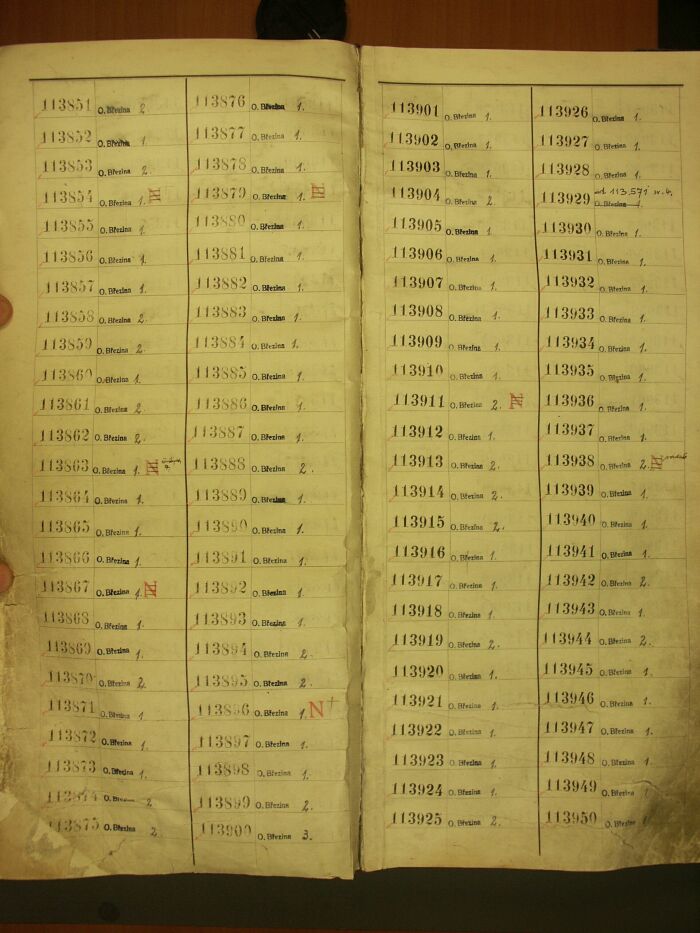 113851 O. Březina 2
113852 O. Březina 1.
113853 O. Březina 2.
113854 O. Březina 1. N
113855 O. Březina 1.
113856 O. Březina 1.
113857 O. Březina 1.
113858 O. Březina 2.
113859 O. Březina 2.
113860 O. Březina 1.
113861 O. Březina 2.
113862 O. Březina 2.
113863 O. Březina 1. N
113864 O. Březina 1.
113865 O. Březina 1.
113866 O. Březina 1.
113867 O. Březina 1. N
113868 O. Březina 1.
113869 O. Březina 1.
113870 O. Březina 2.
113871 O. Březina 1
113872 O. Březina 1.
113873 O. Březina 1.
113874 O. Březina 2
113875 O. Březina 2
113876 O. Březina 1.
113877 O. Březina 1.
113878 O. Březina 1.
113879 O. Březina 1. N
113880 O. Březina 1.
113881 O. Březina 1.
113882 O. Březina 1.
113883 O. Březina 1.
113884 O. Březina 1.
113885 O. Březina 1.
113886 O. Březina 1.
113887 O. Březina 1.
113888 O. Březina 2.
113889 O. Březina 1.
113890 O. Březina 1.
113891 O. Březina 1.
113892 O. Březina 1.
113893 O. Březina 1.
113894 O. Březina 2.
113895 O. Březina 2.
113896 O. Březina 1. N +
113897 O. Březina 1.
113898 O. Březina 1.
113899 O. Březina 2.
113900 O. Březina 3.
113901 O. Březina 1.
113902 O. Březina 1.
113903 O. Březina 1.
113904 O. Březina 2
113905 O. Březina 1
113906 O. Březina 1.
113907 O. Březina 1.
113908 O. Březina 1.
113909 O. Březina 1.
113910 O. Březina 1.
113911 O. Březina 2. N
113912 O. Březina 1.
113913 O. Březina 2.
113914 O. Březina 2.
113915 O. Březina 2.
113916 O. Březina 1.
113917 O. Březina 1.
113918 O. Březina 1.
113919 O. Březina 2.
113920 O. Březina 1.
113921 O. Březina 1.
113922 O. Březina 1.
113923 O. Březina 1.
113924 O. Březina 1.
113925 O. Březina 2.
113926 O. Březina 1.
113927 O. Březina 1.
113928 O. Březina 1.
113,571
113929 O. Březina 1.
113930 O. Březina 1.
113931 O. Březina 1.
113932 O. Březina 1.
113933 O. Březina 1.
113934 O. Březina 1.
113935 O. Březina 1.
113936 O. Březina 1.
113937 O. Březina 1.
113938 O. Březina 2. N
113939 O. Březina 1.
113940 O. Březina 1.
113941 O. Březina 1.
113942 O. Březina 2.
113943 O. Březina 1.
113944 O. Březina 2.
113945 O. Březina 1.
113946 O. Březina 1.
113947 O. Březina 1.
113948 O. Březina 1.
113949 O. Březina 1
113950 O. Březina 1